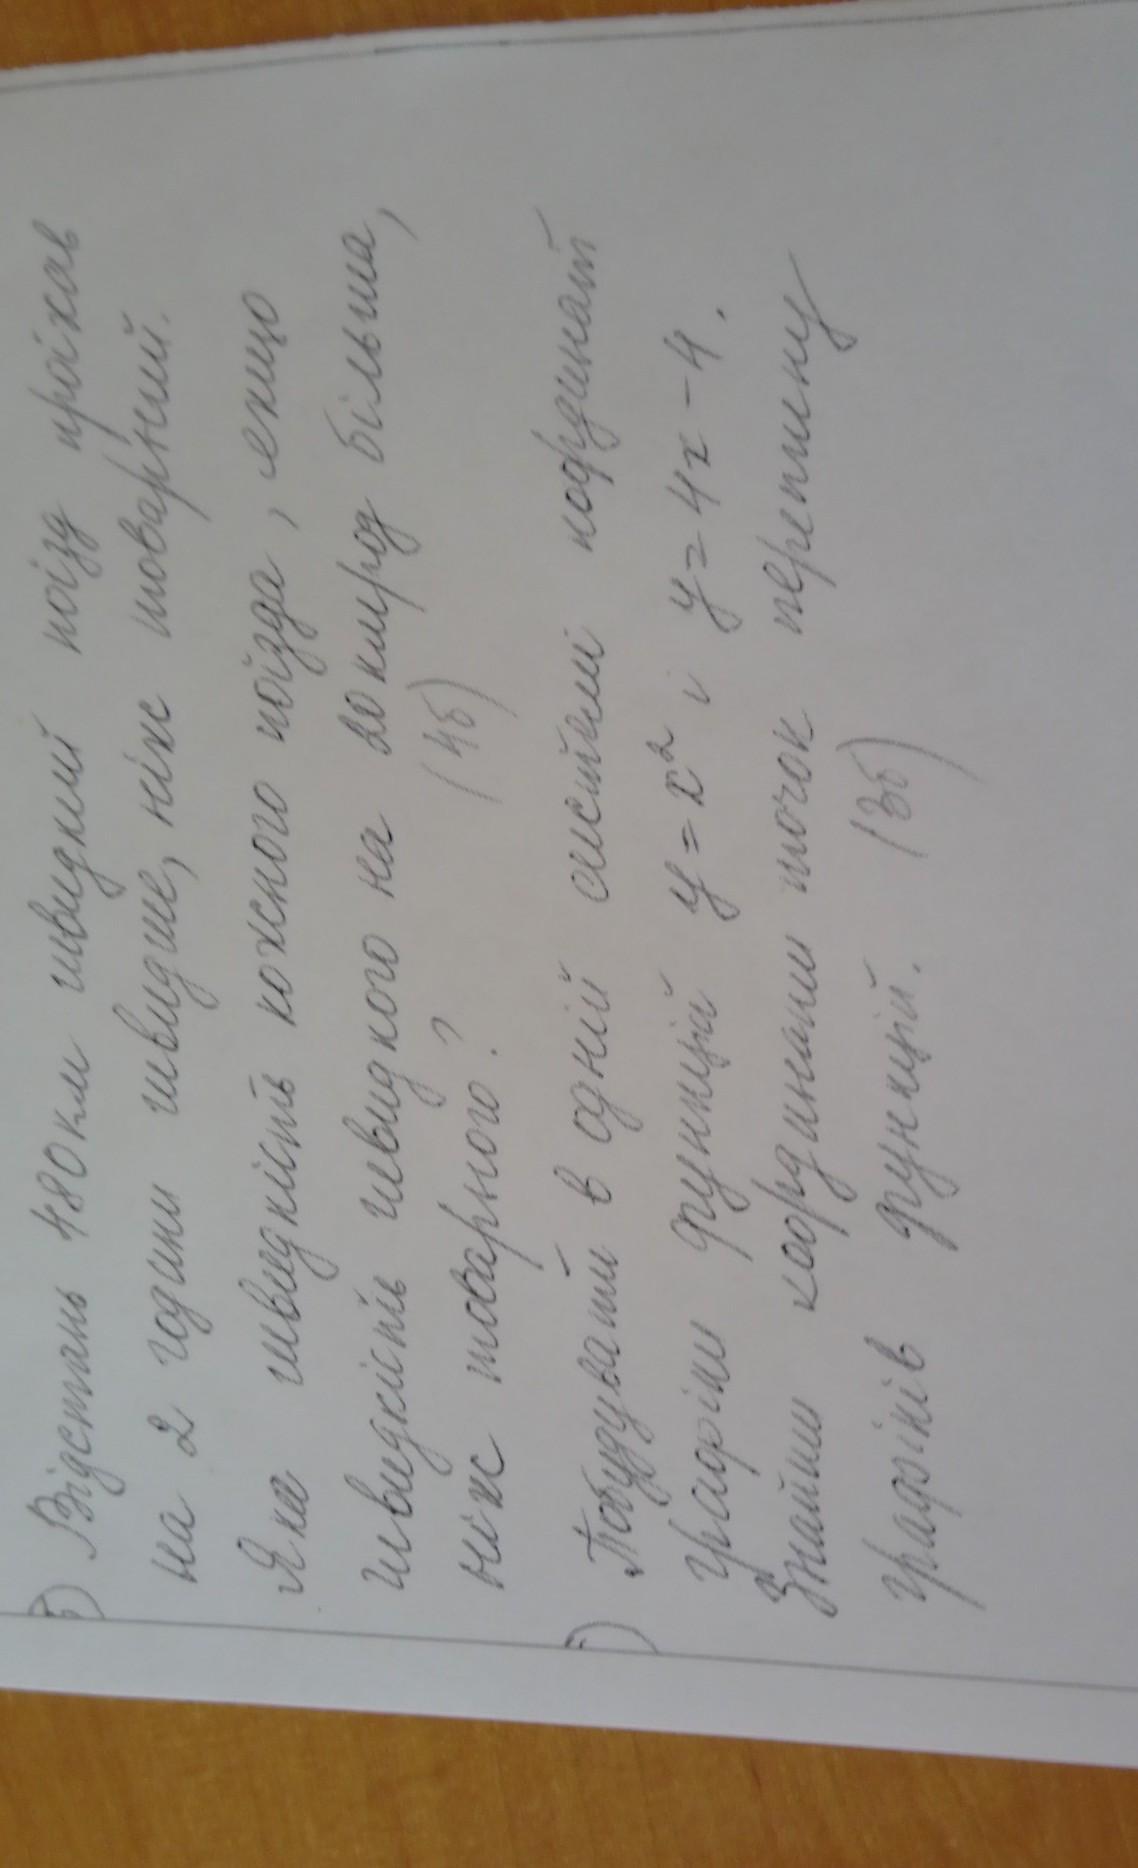 Відстань 480км швидкий поїзд проїхав
на 2 години швидше, ніж товарний.
Яка швидкість кожного поїзда, якщо
швидкість швидкого на 20км/год більша,
ніж товарного? (4б)
Побудувати в одній системі координат
графіки функцій y=x² і y=4x-4.
Знайти координати точок перетину
графіків функцій. (3б)